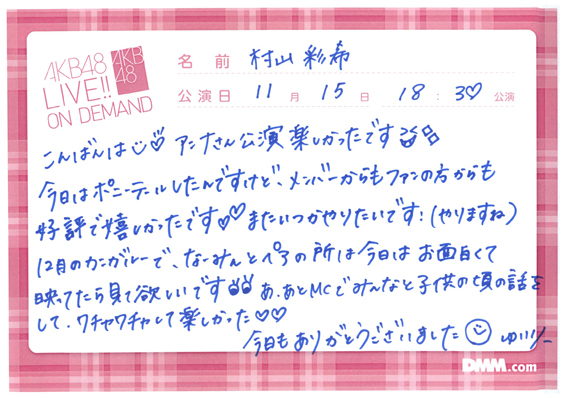 AKB48
LIVE!!
ON DEMAND
AKB
48
名前 村山彩希
公演日 11月15日 18:30公演
こんばんは アンナさん公演楽しかったです
今日はポニーテールしたんですけど、メンバーからもファンの方からも
好評で嬉しかったです♡♡またいつかやりたいです!(やりますね)
12月のカンガルーで、なーみんとペアの所は今日はお面白くて
映ってたら見て欲しいです あ、あとMCでみんなと子供の頃の話を
して、ワチャワチャして楽しかった♡♡
今日もありがとうございました ゆいりー
DMM.com